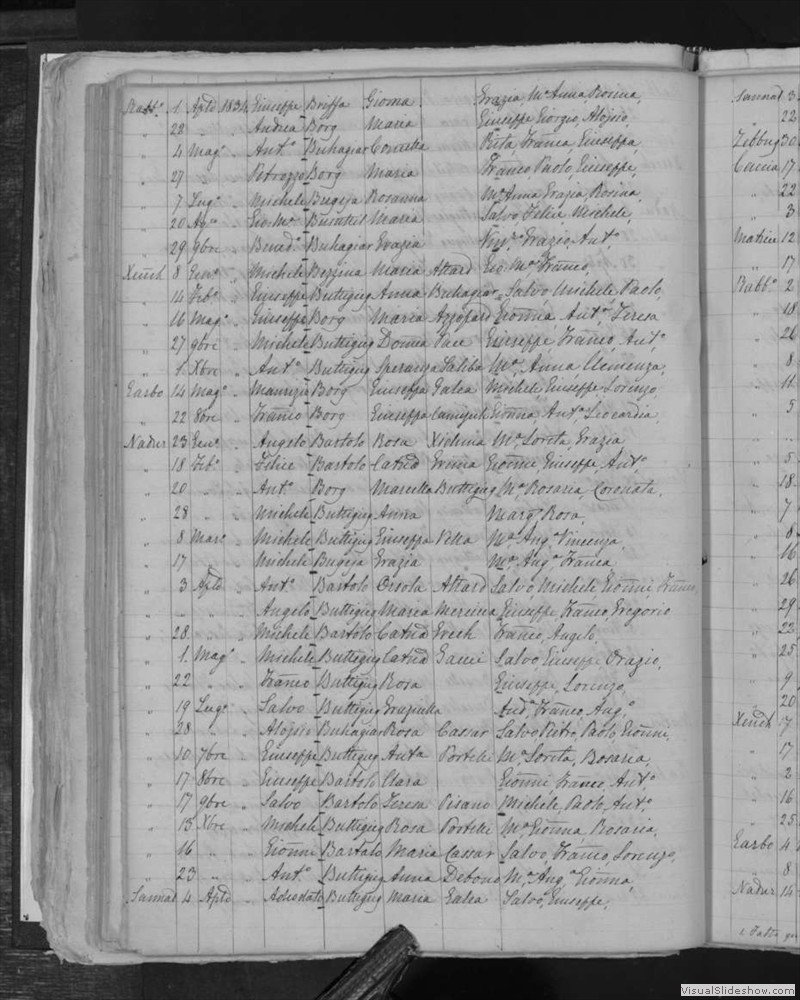 Rabb.º 1 Aple 1834 Giuseppe Briffa Gioma Grazia, Mª Anna, Rosina,
„ 22 „ „ Andrea Borg Maria Giuseppe Giorgio, Aloisio,
„ 4 Magº „ Antº Buhagiar Cornelia Rita, Franca, Giuseppa,
„ 27 „ „ Petruzzo Borg Maria Franco Paolo, Giuseppe,
„ 7 Lugº „ Michele Bugeja Rosanna Mª Anna Grazia, Rosina,
„ 20 Agº „ Gio: Mª Maria Salvo Felice Michele,
„ 29 9bre „ Bened.º Buhagiar Grazia Grazio, Antº
Xeuch 8 Genº „ Michele Bezzina Maria Attard Gio Mª Franco,
„ 14 Febº „ Giuseppe Buttigieg Anna Buhagiar Salvo, Michele, Paolo,
„ 16 Magº „ Giuseppe Borg Maria Azzopard Gionna, Antº, Teresa
„ 27 9bre „ Michele Buttigieg Domca Pace Giuseppe, Franco, Antº
„ 1 Xbre „ Antº Buttigieg Speranza Saliba Mª, Anna Clemenza,
Garbo 14 Magº „ Maurizio Borg Giuseppa Galea Michele, Giuseppe, Lorenzo
„ 22 8bre „ Franco Borg Giuseppa Gionna, Antª Leocardia,
Nadur 23 Genº „ Angelo Bartolo Rosa Xichma Mª Loreta, Grazia
„ 18 Febº „ Felice Bartolo Catnd Grima Gionni, Giuseppe, Antº
„ 20 „ „ Antº Borg Marcella Buttigieg Mª Rosaria, Coronata,
„ 28 „ „ Michele Buttigieg Anna Margª Rosa,
„ 8 Marº „ Michele Buttigieg Giuseppa Vella Mª Angª Vincenza,
„ 17 „ „ Michele Bugeja Grazia Mª, Angª Franca
„ 3 Aple „ Antº Bartolo Orsola Attard Salvo, Michele, Gionni, Franco,
„ „ „ „ Angelo Buttigieg Maria Mercina Giuseppe, Franco, Gregorio
„ 28 „ „ Michele Bartolo Catnd Grech Franco, Angelo,
„ 1 Magº „ Michele Buttigieg Catnd Gauci Salvo, Giuseppe, Orazio,
„ 22 „ „ Franco Buttigieg Rosa Giuseppe, Lorenzo,
„ 19 Lugº „ Salvo Buttigieg Graziulla Franco, Angº
„ 28 „ „ Aloisio Buhagiar Rosa Cassar Salvo Pietro, Paolo Gionni,
„ 10 7bre „ Giuseppe Buttigieg Antª Portelli Mª Loreta, Rosaria,
„ 17 8bre „ Giuseppe Bartolo Clara Gionni Franco, Antº
„ 17 9bre „ Salvo Bartolo Teresa Pisano Michele, Paolo, Antº
„ 15 Xbre „ Michele Buttigieg Rosa Portelli Mª Gionna, Rosaria,
„ 16 „ „ Gionni Bartolo Maria Cassar Salvo, Franco, Lorenzo,
„ 23 „ „ Antº Buttigieg Anna Debono Mª, Angª Gionna,
Sannat 4 Aple „ Adiodato Buttigieg Maria Galea Salvo, Giuseppe,
Sannat 3
„ 22
Zebbug 30
Caccia 17
„ 22
„ 3
12
„ 17
Rabb.º 2
„ 18
„ 26
„ 8
„ 11
„ 5
„ 5
„ 18
„ 7
„ 8
„ 16
„ 26
„ 29
„ 22
„ 25
„ 9
„ 20
Xeuch 7
„ 17
„ 2
„ 16
„ 25
Garbo 4
„ 8
Nadur 14
VisualSlideshow.com